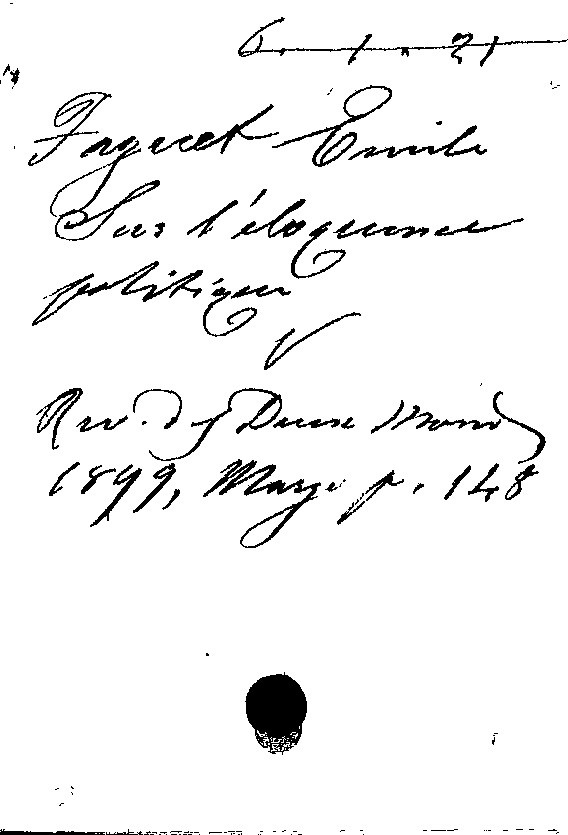 6. 1. 21
Faguet Emile
Sur l'éloquence
politique
Rev. d. Deux Mond
1899, Mars p. 148